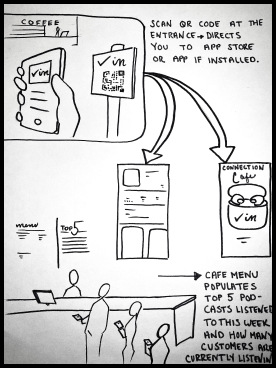 COFFEE
✓in
✓in
SCAN QR CODE AT THE
ENTRANCE → DIRECTS
YOU TO APP STORE
OR APP IF INSTALLED.
CONNECTION
Cafe
✓in
menu
TOP 5
→ CAFE MENU
POPULATES
TOP 5 POD-
CASTS LISTENED
TO THIS WEEK
AND HOW MANY
CUSTOMERS ARE
CURRENTLY LISTENIN